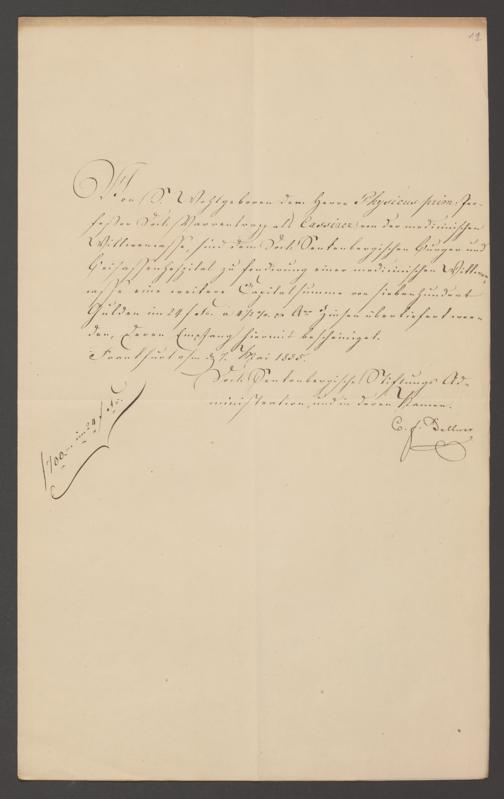 19
Von S. Wohlgeboren dem Herrn Physicus prim. Pro-
fessor Doct. Varrentrapp als Cassirer von der medicinischen
Wittwencasse, sind dem Doct. Senkenbergischen Bürger und
Beisassenhospital zu Fundirung einer medicinischen Wittwen-
casse eine weitere Capitalsumme von Siebenhundert
Gulden im 24 f pr. Ao Zinsen überliefert wor-
den, deren Empfang hiermit bescheiniget.
Frankfurt a/m d. 7. Mai 1835.
Doct. Senkenbergische Stiftungs Ad-
ministration und in deren Namen.
C. f.
f 700.– im 24 f